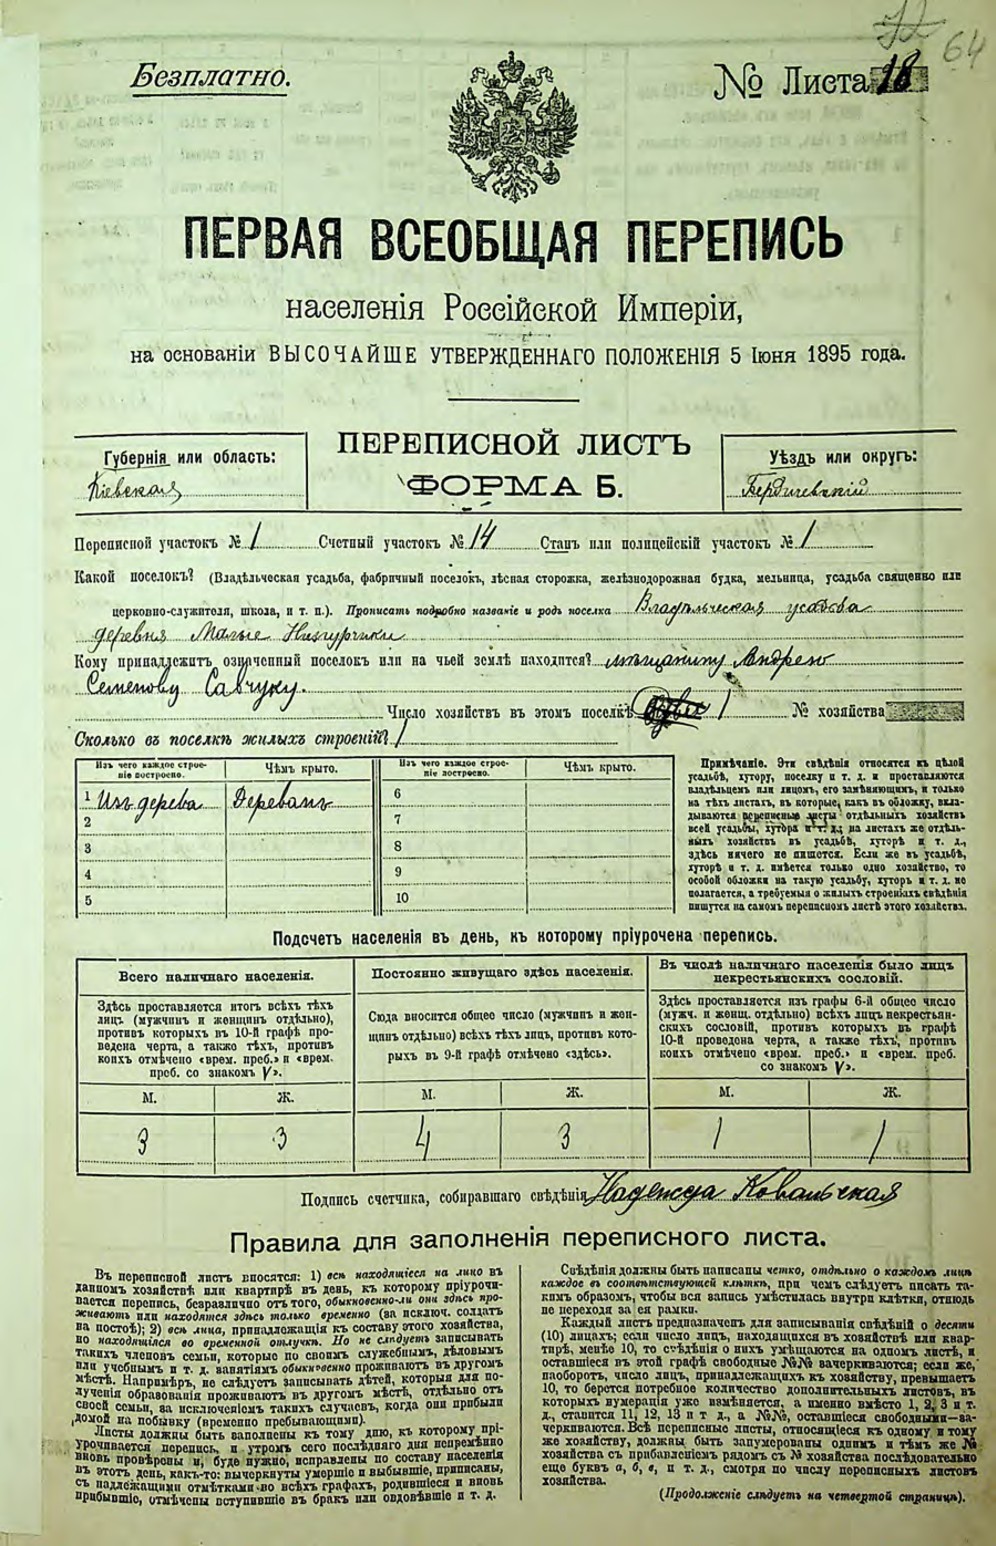 64
Безплатно.
№ Листа 18
ПЕРВАЯ ВСЕОБЩАЯ ПЕРЕПИСЬ
населенія Россійской Имперіи,
на основаніи ВЫСОЧАЙШЕ УТВЕРЖДЕННАГО ПОЛОЖЕНІЯ 5 Іюня 1895 года.
Губернія или область:
Кіевская
ПЕРЕПИСНОЙ ЛИСТЪ
ФОРМА Б.
Уѣздъ или округъ:
Бердичевскій
Переписной участокъ № 1 Счетный участокъ № 14 Станъ или полицейскій участокъ № 1
Какой поселокъ? (Владѣльческая усадьба, фабричный поселокъ, лѣсная сторожка, желѣзнодорожная будка, мельница, усадьба священно или
церковно-служителя, школа, и т. п.). Прописать подробно названіе и родъ поселка Владѣльческая усадьба
деревня Малые Низгурчики
Кому принадлежитъ означенный поселокъ или на чьей землѣ находится? мѣщанину Андрею
Семенову Савчуку.
Число хозяйствъ въ этомъ поселкѣ 1 № хозяйства
Сколько въ поселкѣ жилыхъ строеній? 1
Изъ чего каждое строе-
ніе построено.
Чѣмъ крыто.
Изъ чего каждое строе-
ніе построено.
Чѣмъ крыто.
1 Изъ дерева Деревомъ 6
2 7
3 8
4 9
5 10
Примѣчаніе. Эти свѣдѣнія относятся къ цѣлой
усадьбѣ, хутору, поселку и т. д. и проставляются
владѣльцемъ или лицомъ, его замѣняющимъ, и только
на тѣхъ листахъ, въ которые, какъ въ обложку, вкла-
дываются переписные листы отдѣльныхъ хозяйствъ
всей усадьбы, хутора и т. д.; на листахъ же отдѣль-
ныхъ хозяйствъ въ усадьбѣ, хуторѣ и т. д.,
здѣсь ничего не пишется. Если же въ усадьбѣ,
хуторѣ и т. д. имѣется только одно хозяйство, то
особой обложки на такую усадьбу, хуторъ и т. д. не
полагается, а требуемыя о жилыхъ строеніяхъ свѣдѣнія
пишутся на самомъ переписномъ листѣ этого хозяйства.
Подсчетъ населенія въ день, къ которому пріурочена перепись.
Всего наличнаго населенія.
Здѣсь проставляется итогъ всѣхъ тѣхъ
лицъ (мужчинъ и женщинъ отдѣльно),
противъ которыхъ въ 10-й графѣ про-
ведена черта, а также тѣхъ, противъ
коихъ отмѣчено «врем. преб.» и «врем.
преб. со знакомъ V».
М. Ж.
3 3
Постоянно живущаго здѣсь населенія.
Сюда вносится общее число (мужчинъ и жен-
щинъ отдѣльно) всѣхъ тѣхъ лицъ, противъ кото-
рыхъ въ 9-й графѣ отмѣчено «здѣсь».
М. Ж.
4 3
Въ числѣ наличнаго населенія было лицъ
некрестьянскихъ сословій.
Здѣсь проставляется изъ графы 6-й общее число
(мужч. и женщ. отдѣльно) всѣхъ лицъ некрестьян-
скихъ сословій, противъ которыхъ въ графѣ
10-й проведена черта, а также тѣхъ, противъ
коихъ отмѣчено «врем. преб.» и «врем. преб.
со знакомъ V».
М. Ж.
1 1
Подпись счетчика, собиравшаго свѣдѣнія Надежда Ковальская
Правила для заполненія переписного листа.
Въ переписной листъ вносятся: 1) всѣ находящіеся на лицо въ
данномъ хозяйствѣ или квартирѣ въ день, къ которому пріурочи-
вается перепись, безразлично отъ того, обыкновенно-ли они здѣсь про-
живаютъ или находятся здѣсь только временно (за исключ. солдатъ
на постоѣ); 2) всѣ лица, принадлежащія къ составу этого хозяйства,
но находящіяся во временной отлучкѣ. Но не слѣдуетъ записывать
такихъ членовъ семьи, которые по своимъ служебнымъ, дѣловымъ
или учебнымъ и т. д. занятіямъ обыкновенно проживаютъ въ другомъ
мѣстѣ. Напримѣръ, не слѣдуетъ записывать дѣтей, которыя для по-
лученія образованія проживаютъ въ другомъ мѣстѣ, отдѣльно отъ
своей семьи, за исключеніемъ такихъ случаевъ, когда они прибыли
домой на побывку (временно пребывающими).
Листы должны быть заполнены къ тому дню, къ которому прі-
урочивается перепись, и утромъ сего послѣдняго дня непремѣнно
вновь провѣрены и, буде нужно, исправлены по составу населенія
въ этотъ день, какъ-то: вычеркнуты умершіе и выбывшіе, приписаны,
съ надлежащими отмѣтками во всѣхъ графахъ, родившіеся и вновь
прибывшіе, отмѣчены вступившіе въ бракъ или овдовѣвшіе и т. д.
Свѣдѣнія должны быть написаны четко, отдѣльно о каждомъ лицѣ
каждое въ соотвѣтствующей клѣткѣ, при чемъ слѣдуетъ писать та-
кимъ образомъ, чтобы вся запись умѣстилась внутри клѣтки, отнюдь
не переходя за ея рамки.
Каждый листъ предназначенъ для записыванія свѣдѣній о десяти
(10) лицахъ; если число лицъ, находящихся въ хозяйствѣ или квар-
тирѣ, менѣе 10, то свѣдѣнія о нихъ умѣщаются на одномъ листѣ, и
оставшіеся въ этой графѣ свободные №№ вычеркиваются; если же,
наоборотъ, число лицъ, принадлежащихъ къ хозяйству, превышаетъ
10, то берется потребное количество дополнительныхъ листовъ, въ
которыхъ нумерація уже измѣняется, а именно вмѣсто 1, 2, 3 и т.
д., ставится 11, 12, 13 и т д., а №№, оставшіеся свободными—за-
черкиваются. Всѣ переписные листы, относящіеся къ одному и тому
же хозяйству, должны быть занумерованы однимъ и тѣмъ же №
хозяйства съ прибавленіемъ рядомъ съ № хозяйства послѣдовательно
еще буквъ а, б, в, и т. д., смотря по числу переписныхъ листовъ
хозяйства.
(Продолженіе слѣдуетъ на четвертой страницѣ).